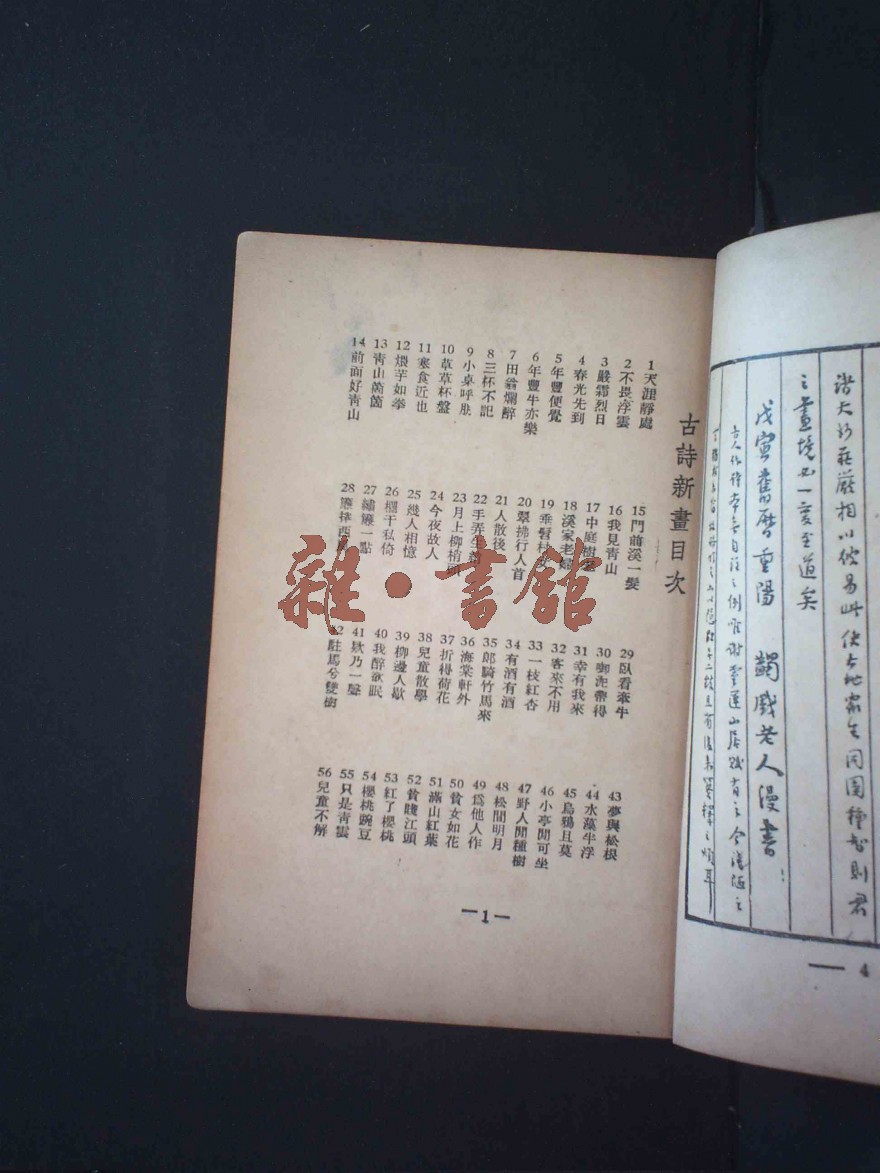 諸天〻莊嚴相以彼易此使大地衆生同圓種智則君
之畫境必一變至道矣
戊寅舊曆重陽 蠲戲老人漫書
4
古詩新畫目次
1天涯靜處
2不畏浮雲
3嚴霜烈日
4春光先到
5年豐便覺
6年豐牛亦樂
7田翁爛醉
8三杯不記
9小桌呼朋
10草草杯盤
11寒食近也
12煨芋如拳
13青山箇箇
14前面好青山
15門前溪一髮
16我見青山
17中庭樹老
18溪家老婦
19垂髫村女
20翠拂行人首
21人散後
22手弄生綃
23月上柳梢頭
24今夜故人
25幾人相憶
26欄干私倚
27繡簾一點
28簾捲西
29臥看牽牛
30啣泥帶得
31幸有我來
32客來不用
33一枝紅杏
34有酒有酒
35郎騎竹馬來
36海棠軒外
37折得荷花
38兒童散學
39柳邊人歇
40我醉欲眠
41欸乃一聲
42駐馬兮雙樹
43夢與松根
44水藻半浮
45烏鴉且莫
46小亭閒可坐
47野人閒種樹
48松間明月
49爲他人作
50貧女如花
51滿山紅葉
52貧賤江頭
53紅了櫻桃
54櫻桃豌豆
55只是青雲
56兒童不解
—1—
雜·書館